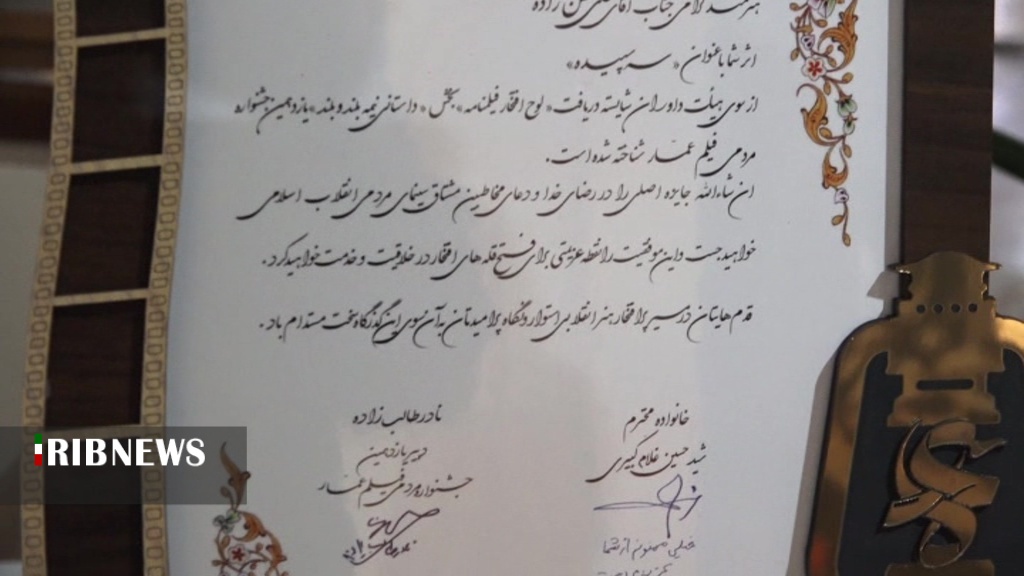 هنرمند گرامی جناب آقای زاده
اثر شما با عنوان «سه سپیده»
از سوی هیأت داوران شایسته دریافت «لوح افتخار فیلمنامه» بخش «داستانی نیمه بلند و بلند» یازدهمین جشنواره
مردمی فیلم عمار شناخته شده است.
ان شاءالله جایزه اصلی را در رضای خدا و دعای مخاطبین مشتاق سینمای مردمی انقلاب اسلامی
خواهید جست و این موفقیت را نقطه عزیمتی برای فتح قله های افتخار در خلاقیت و خدمت خواهید کرد.
قدم هایتان در مسیر پرافتخار هنر انقلابی استوار و نگاه پرامیدتان به آن سوی این گذرگاه سخت مستدام باد.
خانواده محترم
شهید حسین غلام کبیری
نادر طالب زاده
دبیر یازدهمین
جشنواره مردمی فیلم عمار
خیلی ممنونم از شما
IRIBNEWS